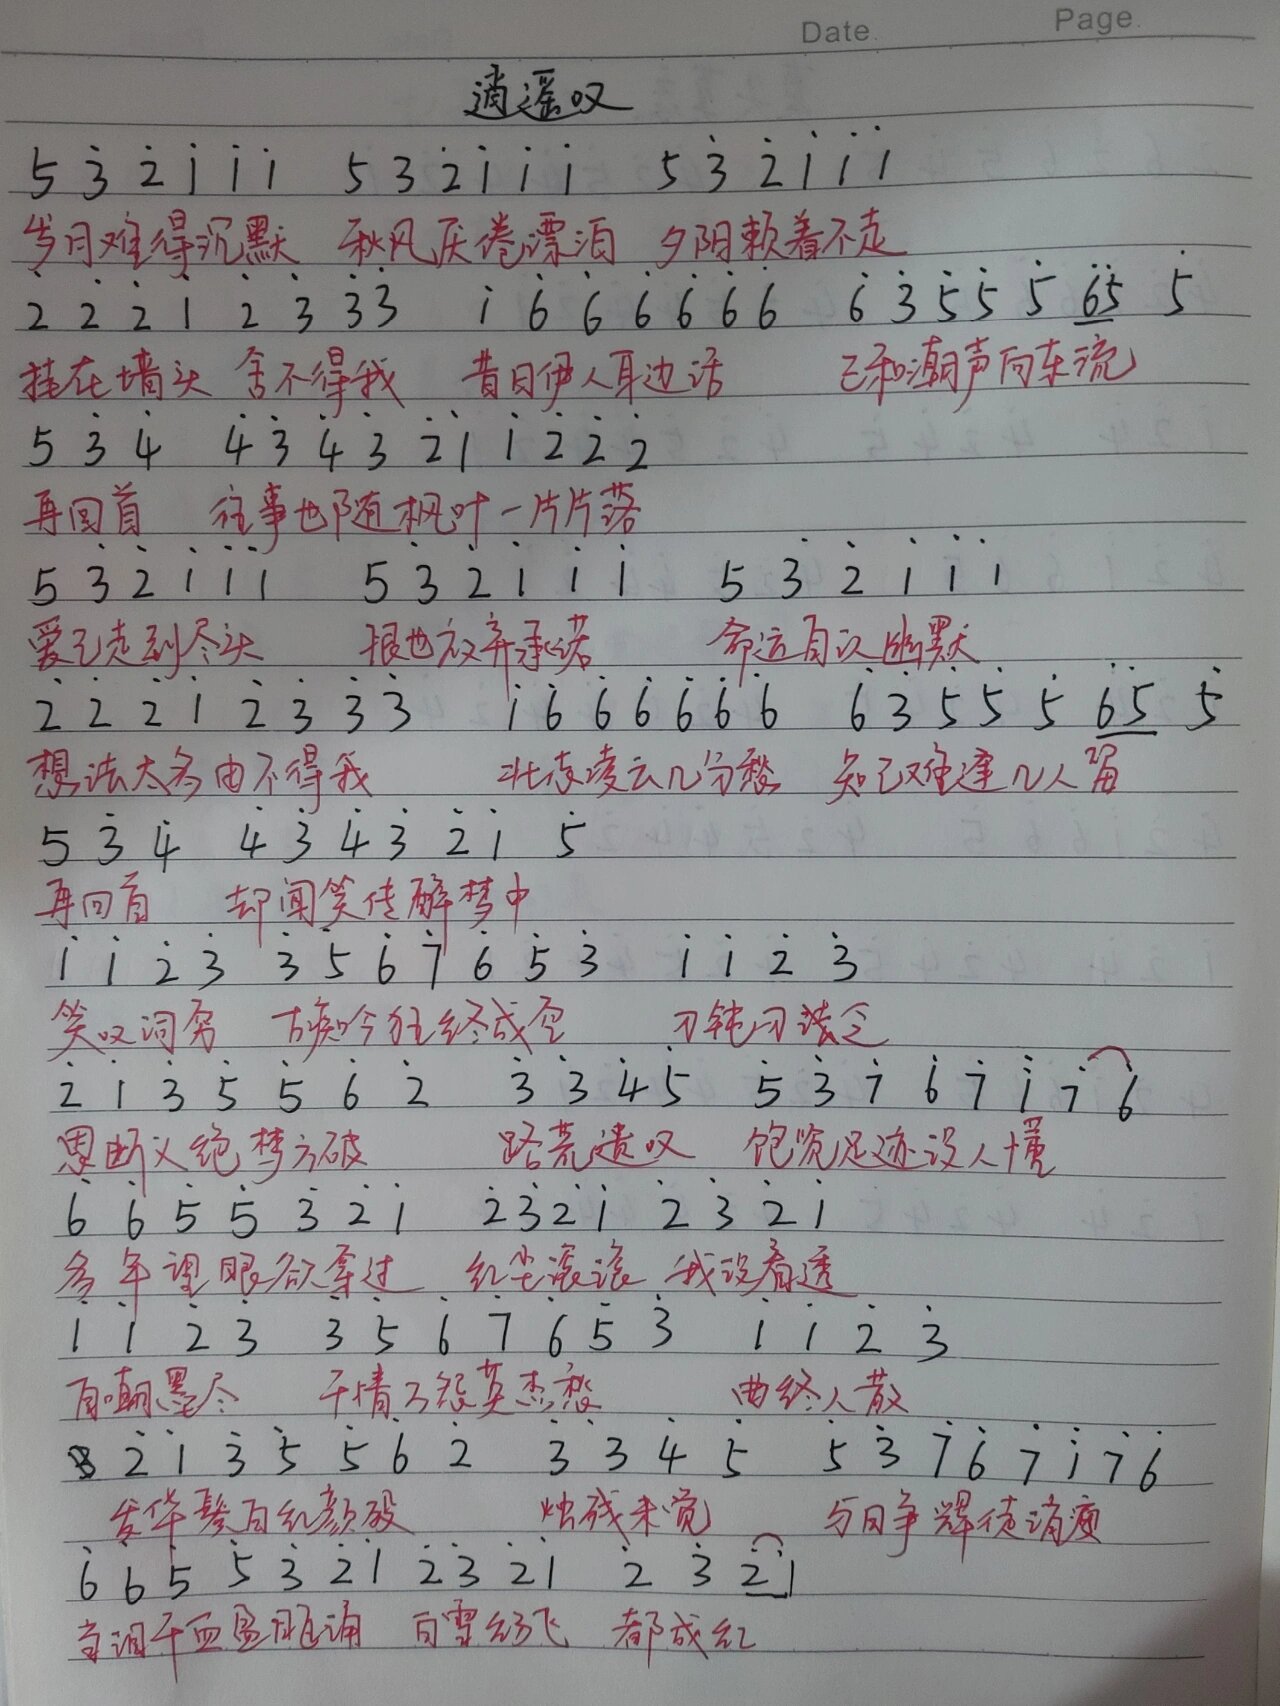 Date Page
逍遥叹
5 3̇ 2̇ 1̇ 1̇ 1̇ 5 3 2̇ 1̇ 1̇ 1̇ 5 3̇ 2̇ 1̇ 1̇ 1̇
岁月难得沉默 秋风厌倦漂泊 夕阳赖着不走
2̇ 2̇ 2̇ 1̇ 2̇ 3̇ 3̇ 3̇ 1̇ 6̇ 6̇ 6̇ 6̇ 6̇ 6̇ 6̇ 3̇ 5̇ 5̇ 5̇ 6̇5̇ 5̇
挂在墙头 舍不得我 昔日伊人耳边话 已和潮声向东流
5 3̇ 4̇ 4̇ 3̇ 4̇ 3̇ 2̇ 1̇ 1̇ 2̇ 2̇ 2̇
再回首 往事也随枫叶一片片落
5 3̇ 2̇ 1̇ 1̇ 1̇ 5 3̇ 2̇ 1̇ 1̇ 1̇ 5 3̇ 2̇ 1̇ 1̇ 1̇
爱已走到尽头 恨也放弃承诺 命运自认幽默
2̇ 2̇ 2̇ 1̇ 2̇ 3̇ 3̇ 3̇ 1̇ 6̇ 6̇ 6̇ 6̇ 6̇ 6̇ 6̇ 3̇ 5̇ 5̇ 5̇ 6̇5̇ 5̇
想法太多由不得我 壮志凌云几分愁 知己难逢几人留
5 3̇ 4̇ 4̇ 3̇ 4̇ 3̇ 2̇ 1̇ 5̇
再回首 却闻笑传醉梦中
1̇ 1̇ 2̇ 3̇ 3̇ 5̇ 6̇ 7̇ 6̇ 5̇ 3̇ 1̇ 1̇ 2̇ 3̇
笑叹词穷 古痴今狂终成空 刀钝刃
2̇ 1̇ 3̇ 5̇ 5̇ 6̇ 2̇ 3̇ 3̇ 4̇ 5̇ 5̇ 3̇ 7̇ 6̇ 7̇ 1̇ 7̇ 6̇
恩断义绝梦方破 路荒遗叹 饱览足迹没人懂
6̇ 6̇ 5̇ 5̇ 3̇ 2̇ 1̇ 2̇ 3̇ 2̇ 1̇ 2̇ 3̇ 2̇ 1̇
多年望眼欲穿过 红尘滚滚 我没看透
1̇ 1̇ 2̇ 3̇ 3̇ 5̇ 6̇ 7 6̇ 5̇ 3̇ 1̇ 1̇ 2̇ 3̇
自嘲墨尽 千情万怨英杰愁 曲终人散
2̇ 1̇ 3̇ 5̇ 5̇ 6̇ 2̇ 3̇ 3̇ 4̇ 5̇ 5̇ 3̇ 7̇ 6̇ 7̇ 1̇ 7̇ 6̇
发华鬓白红颜殁 烛残未觉 与日争辉徒消瘦
6̇ 6̇ 5̇ 5̇ 3̇ 2̇ 1̇ 2̇ 3̇ 2̇ 1̇ 2̇ 3̇ 2̇ 1̇
当泪干血盈眶涌 白雪纷飞 都成红